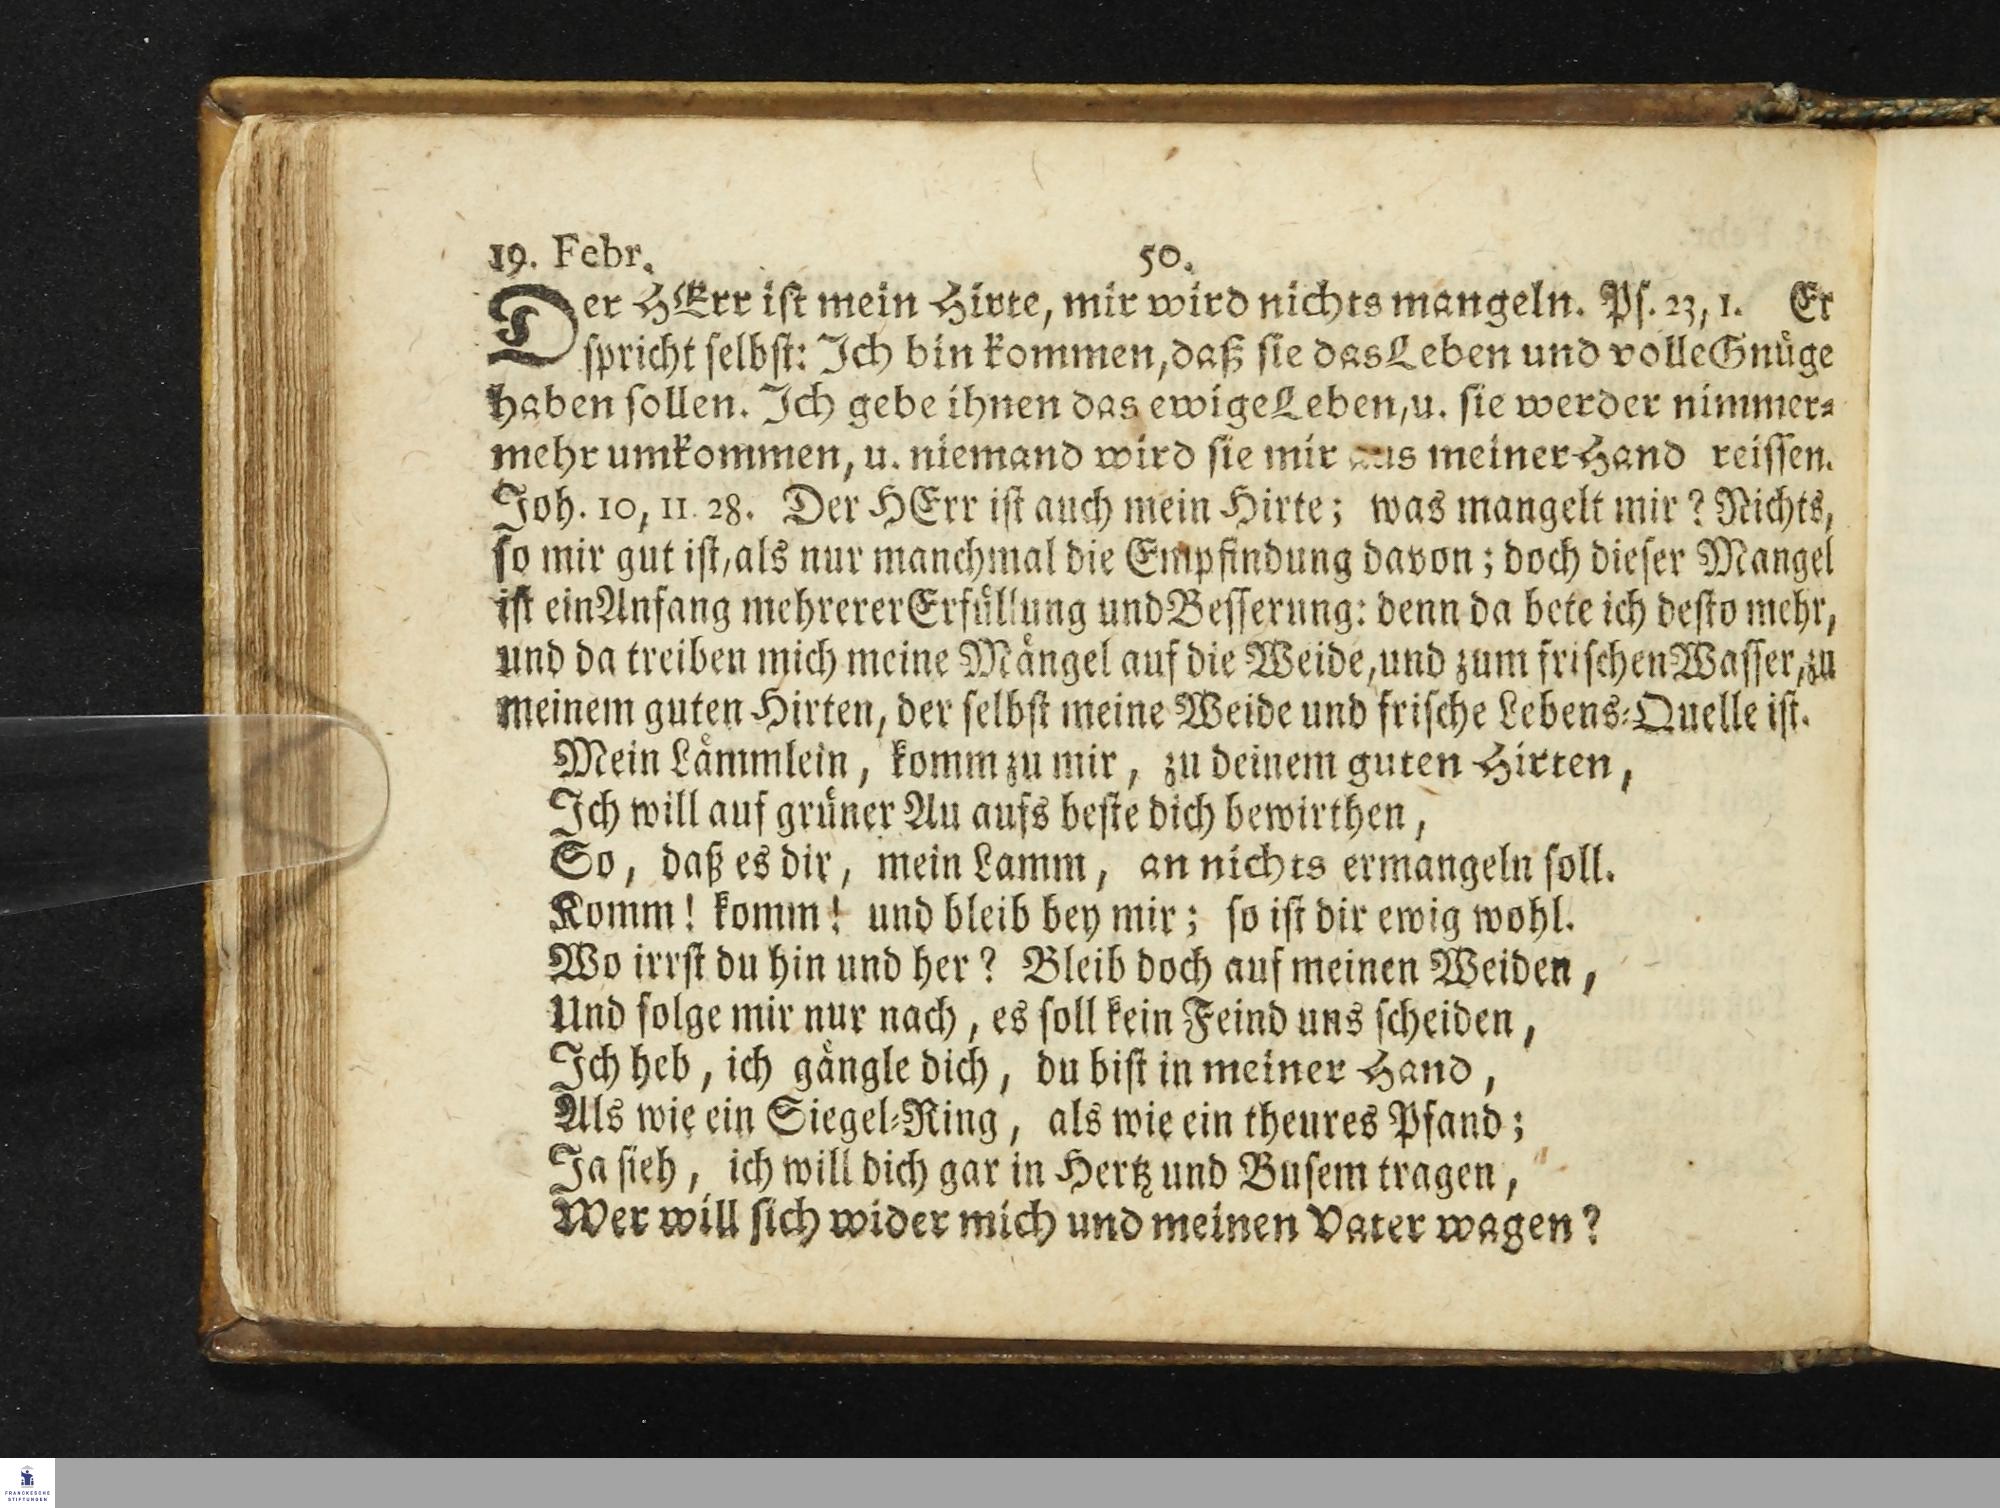 19. Febr. 50.
Der HErr ist mein Hirte, mir wird nichts mangeln. Ps. 23, 1. Er
spricht selbst: Ich bin kommen, daß sie das Leben und volle Gnüge
haben sollen. Ich gebe ihnen das ewige Leben, u. sie werder nimmer-
mehr umkommen, u. niemand wird sie mir aus meiner Hand reissen.
Joh. 10, 11. 28. Der HErr ist auch mein Hirte; was mangelt mir? Nichts,
so mir gut ist, als nur manchmal die Empfindung davon; doch dieser Mangel
ist ein Anfang mehrerer Erfüllung und Besserung: denn da bete ich desto mehr,
und da treiben mich meine Mängel auf die Weide, und zum frischen Wasser, zu
meinem guten Hirten, der selbst meine Weide und frische Lebens-Quelle ist.
Mein Lämmlein, komm zu mir, zu deinem guten Hirten,
Ich will auf grüner Au aufs beste dich bewirthen,
So, daß es dir, mein Lamm, an nichts ermangeln soll.
Komm! komm! und bleib bey mir; so ist dir ewig wohl.
Wo irrst du hin und her? Bleib doch auf meinen Weiden,
Und folge mir nur nach, es soll kein Feind uns scheiden,
Ich heb, ich gängle dich, du bist in meiner Hand,
Als wie ein Siegel-Ring, als wie ein theures Pfand;
Ja sieh, ich will dich gar in Hertz und Busem tragen,
Wer will sich wider mich und meinen Vater wagen?
FRANCKESCHE
STIFTUNGEN